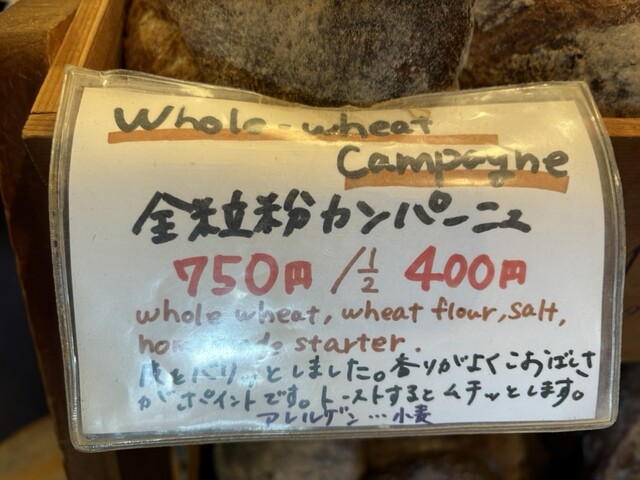 Whole-wheat
Campagne
全粒粉カンパーニュ
750円 / 1/2 400円
whole wheat, wheat flour, salt,
homemade starter.
皮をパリッとしました。香りがよくこおばしさ
がポイントです。トーストするとムチッとします。
アレルゲン…小麦